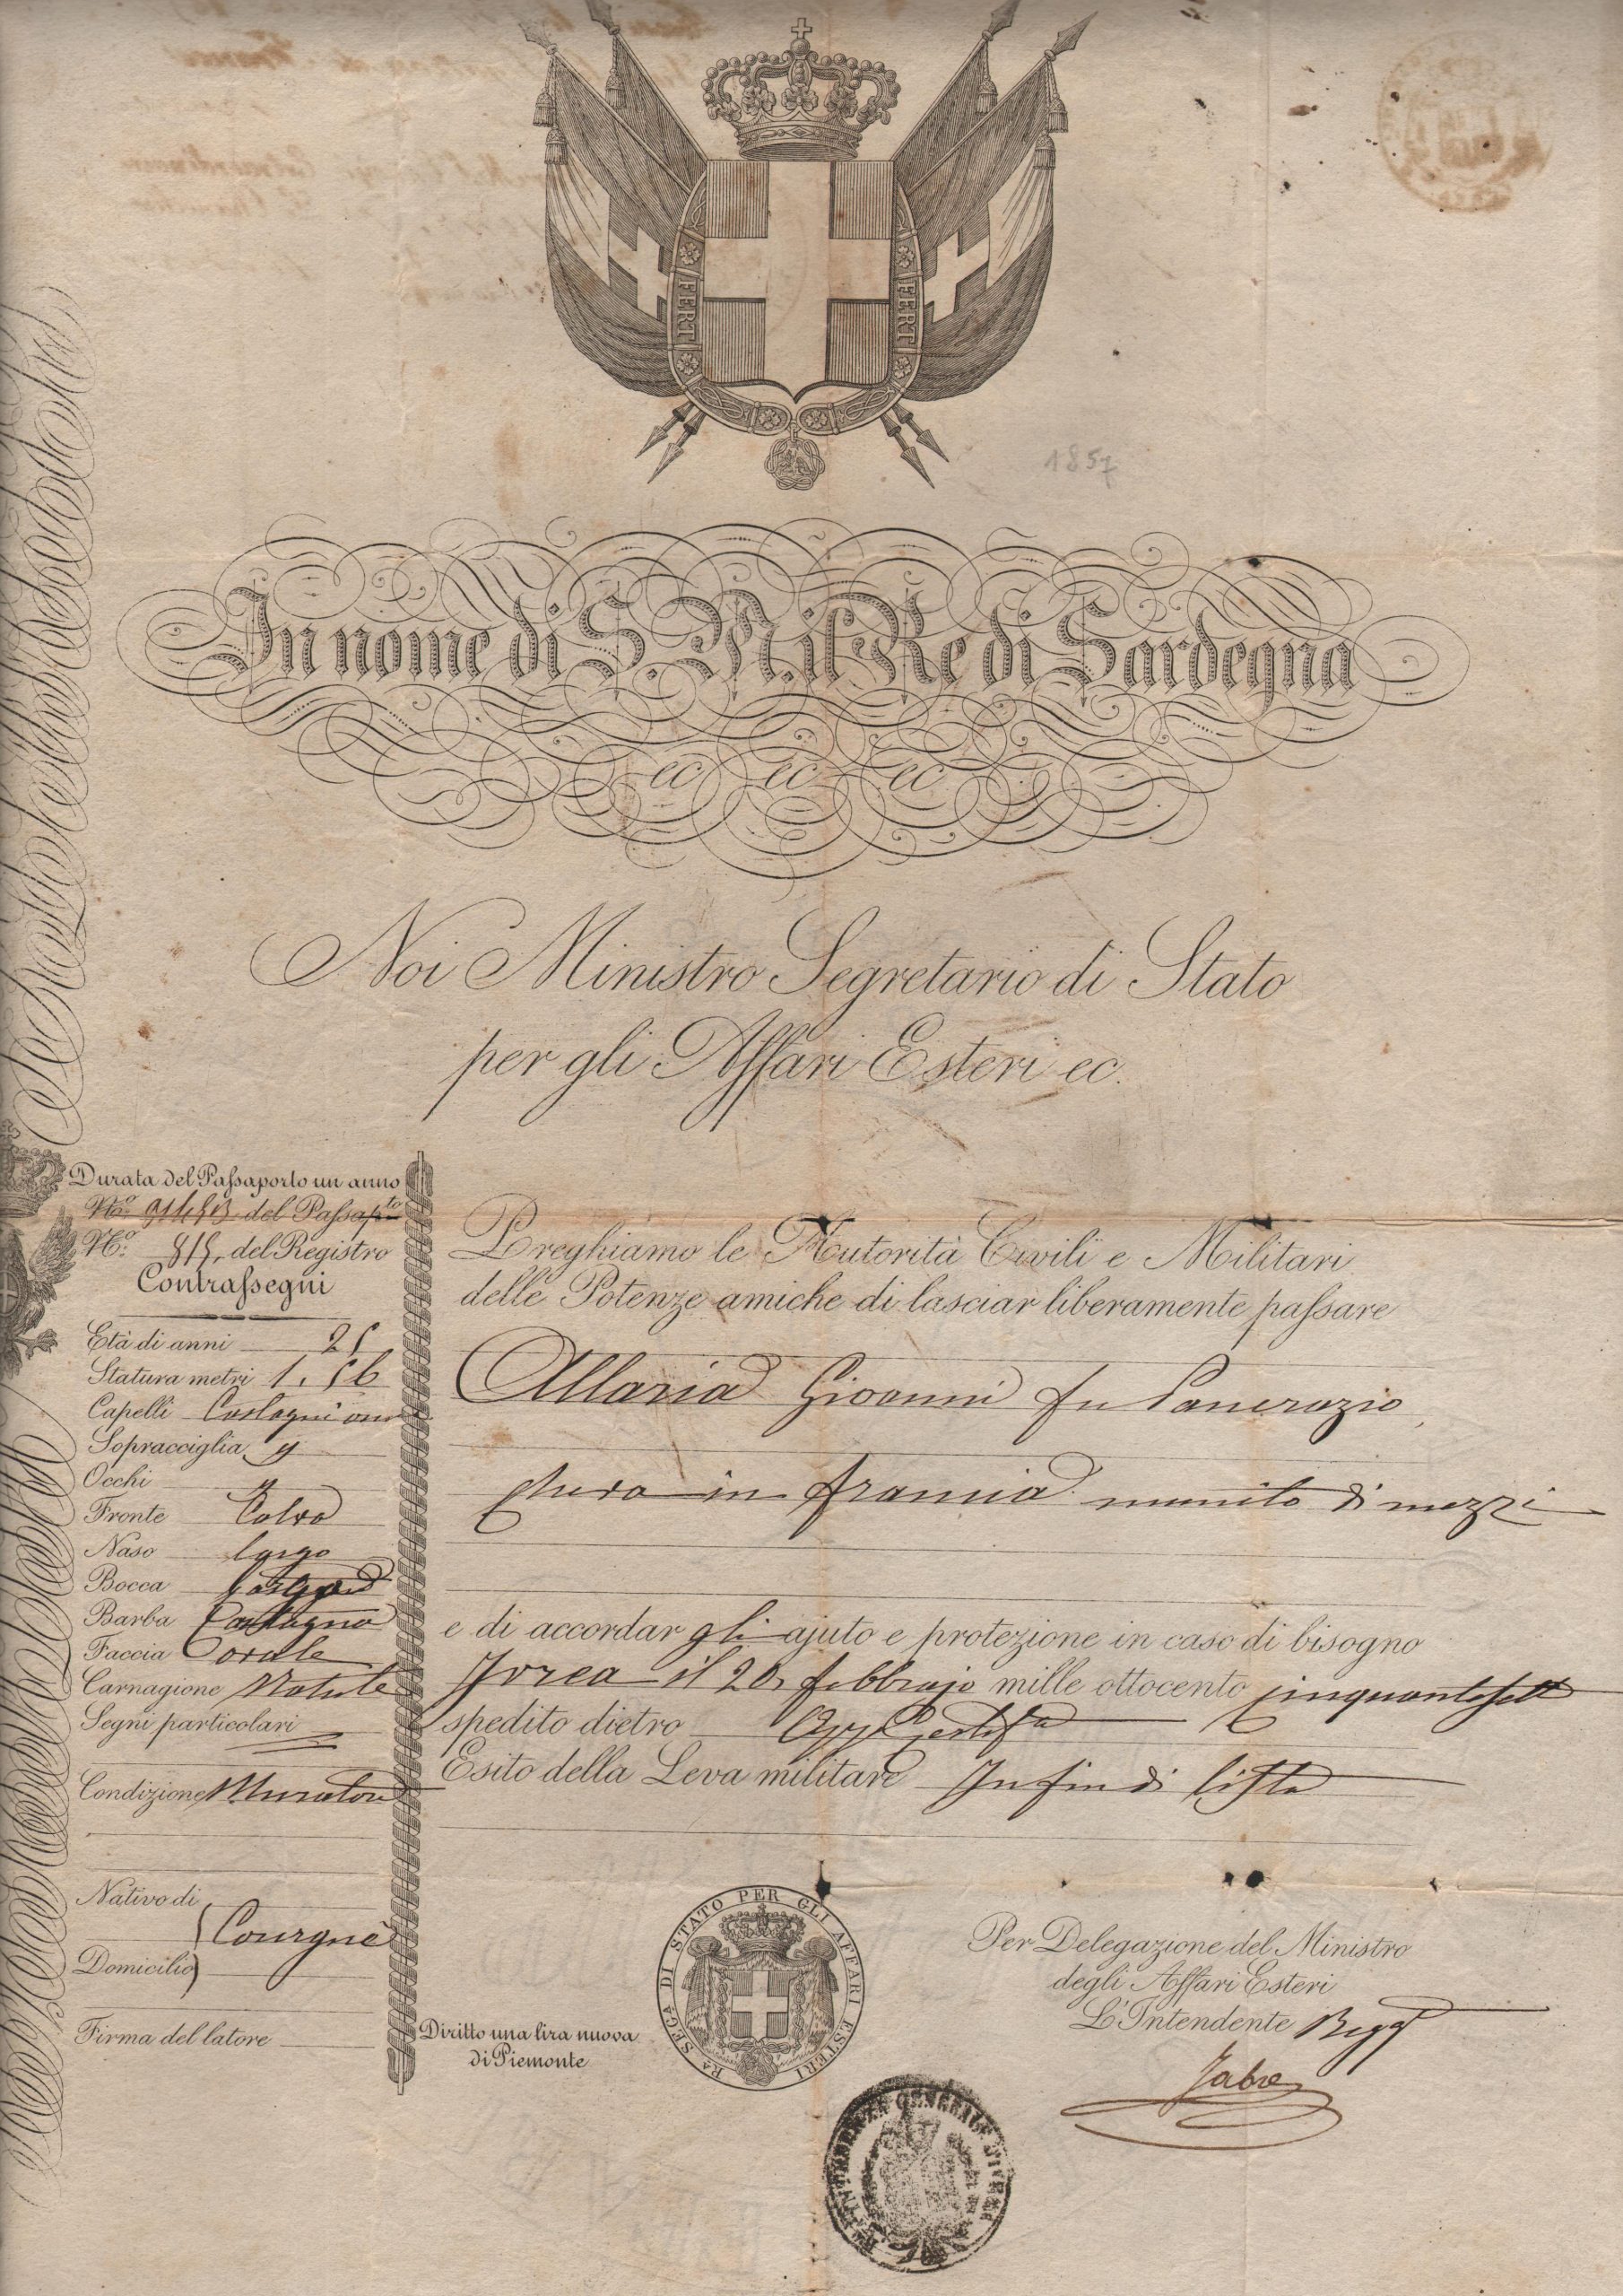 FERT FERT
1857
In nome di S. M. il Re di Sardegna
ec ec ec
Noi Ministro Segretario di Stato
per gli Affari Esteri ec.
Durata del Passaporto un anno
N.o del Passap.to
N.o del Registro
Contrassegni
Età di anni 25
Statura metri 1.56
Capelli Castagni
Sopracciglia
Occhi
Fronte Calva
Naso largo
Bocca
Barba Castagna
Faccia Ovale
Carnagione Natule
Segni particolari
Condizione Muratore
Nativo di
Courgnè
Domicilio
Firma del latore
Preghiamo le Autorità Civili e Militari
delle Potenze amiche di lasciar liberamente passare
Allaria Giovanni fu Pancrazio
in Francia munito di mezzi
e di accordar gli ajuto e protezione in caso di bisogno
Ivrea il 20 febbrajo mille ottocento cinquantasette
spedito dietro
Esito della Leva militare In fin di lista
Diritto una lira nuova
di Piemonte
Ra SEGa DI STATO PER GLI AFFARI ESTERI
Per Delegazione del Ministro
degli Affari Esteri
L'Intendente Regg
INTENDENZA GENERALE D'IVREA